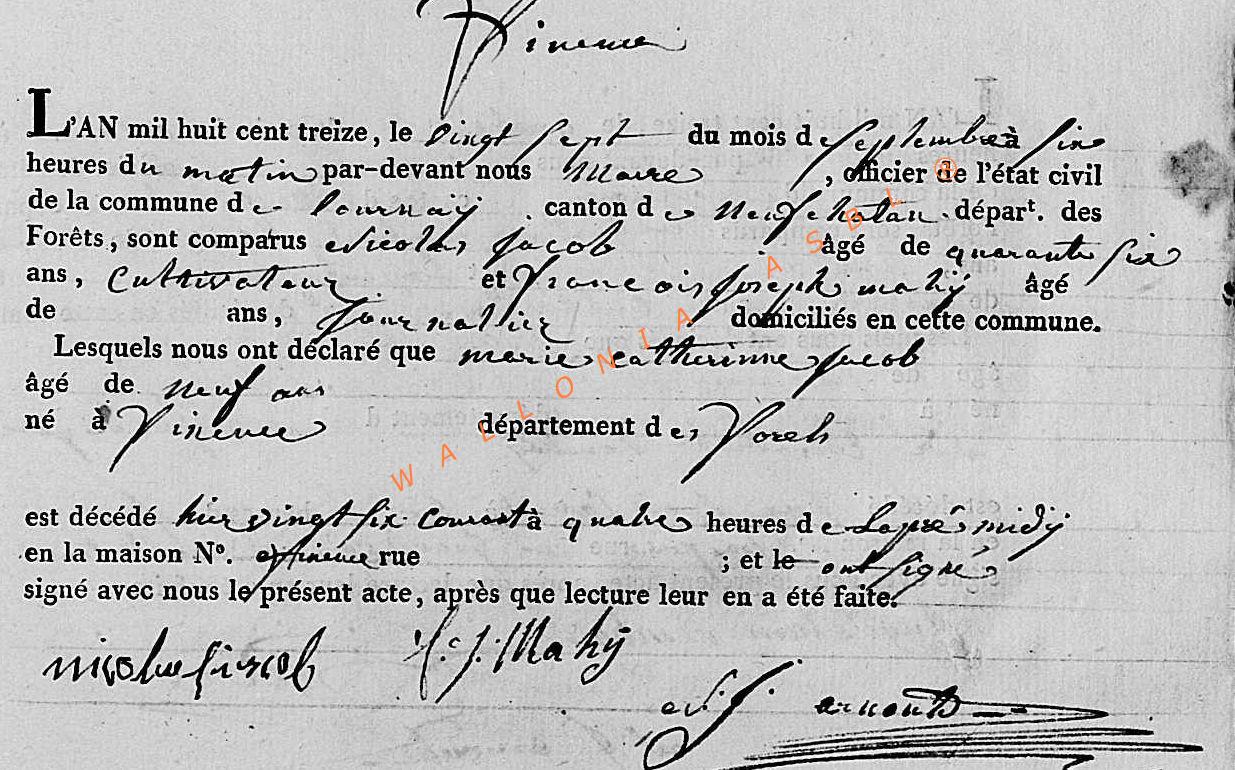 Vinence
L'AN mil huit cent treize, le vingt sept du mois de Septembre à six
heures du matin par-devant nous Maire, officier de l'état civil
de la commune de tournaÿ. canton de Neufchatau. départ. des
Forêts, sont comparus Nicolas jacob âgé de quarante six
ans, Cultivateur et francois joseph mahÿ âgé
de ans, journalier domiciliés en cette commune.
Lesquels nous ont déclaré que marie catherinne jacob
âgé de neuf ans
né à Vinence département des Forets
est décédé hier vingt six courant à quatre heures de Laprés midÿ
en la maison Nº. a Vinence rue ; et le ont signé
signé avec nous le présent acte, après que lecture leur en a été faite.
nicolas jacob f. j. Mahÿ
arnould
WALLONIA ASBL ®